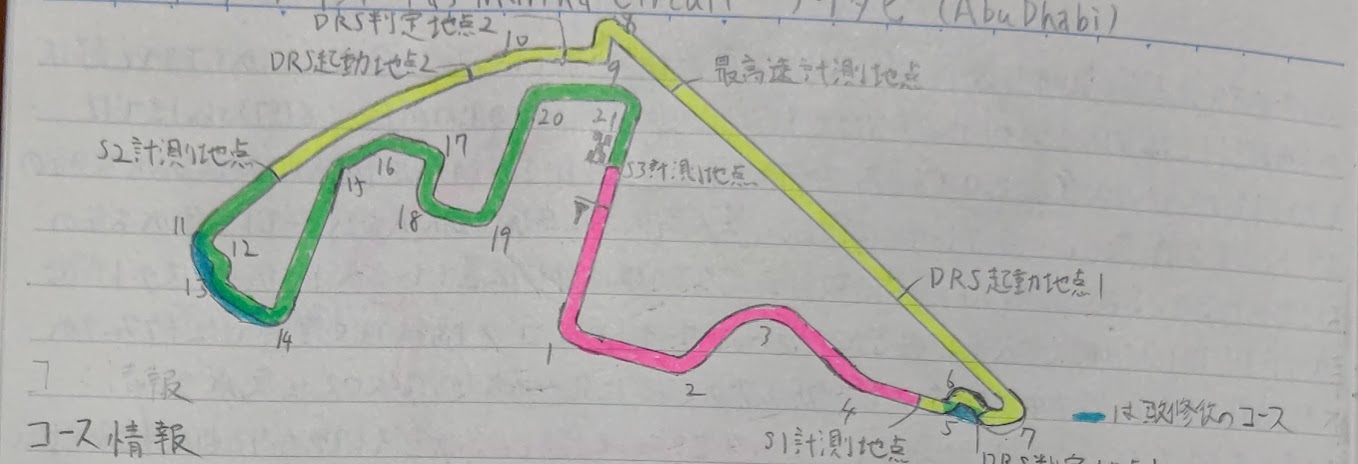 Circuit
(Abu Dhabi)
DRS判定地点2
10
8
DRS起動地点2
9
最高速計測地点
20
21
S2計測地点
17
16
S3計測地点
15
18
11
12
19
13
DRS起動地点1
14
1
3
2
6
4
5
7
は改修後のコース
S1計測地点
報
コース情報